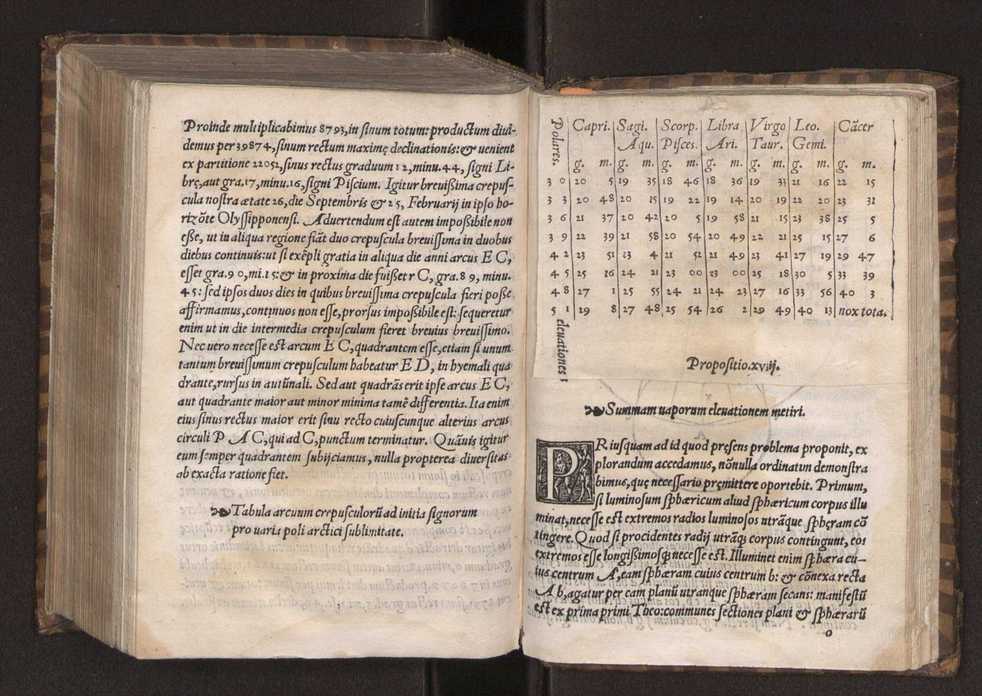 Proinde multiplicabimus 8793, in sinum totum: productum diui-
demus per 39874, sinum rectum maximę declinationis: & uenient
ex partitione 22052, sinus rectus graduum 12, minu. 44, signi Li-
brę, aut gra. 17, minu. 16, signi Piscium. Igitur breuißima crepus-
cula nostra ætate 26, die Septembris & 25, Februarij in ipso ho-
rizōte Olyssipponensi. Aduertendum est autem impoßibile non
eße, ut in aliqua regione fiāt duo crepuscula breuissima in duobus
diebus continuis: ut si exēpli gratia in aliqua die anni arcus E C,
esset gra. 90, mi. 15: & in proxima die fuißet r C, gra. 89, minu.
45: sed ipsos duos dies in quibus breuissima crepuscula fieri poße
affirmamus, continuos non esse, prorsus impoßibile est: sequeretur
enim ut in die intermedia crepusculum fieret breuius breuissimo.
Nec uero necesse est arcum E C, quadrantem esse, etiam si unum
tantum breuissimum crepusculum habeatur E D, in hyemali qua
drante, rursus in autūnali. Sed aut quadrās erit ipse arcus E C,
aut quadrante maior aut minor minima tamē differentia. Ita enim
eius sinus rectus maior erit sinu recto cuiuscunque alterius arcus
circuli P A C, qui ad C, punctum terminatur. Quāuis igitur
eum semper quadrantem subijciamus, nulla propterea diuersitas
ab exacta ratione fiet.
Tabula arcuum crepusculorū ad initia signorum
pro uaris poli arctici sublimitate.
Polares. Capri. Sagi. Scorp. Libra Virgo Leo. Cācer
Aqu. Pisces. Ari. Taur. Gemi.
g. m. g. m. g. m. g. m. g. m. g. m. g. m.
30 20 5 19 35 18 46 18 36 19 33 21 16 22 15
33 20 48 20 15 19 22 19 14 20 19 22 20 23 31
36 21 37 20 42 20 5 19 58 21 15 23 38 25 5
39 22 39 21 58 20 54 20 49 22 21 25 15 27 6
42 23 51 23 4 21 52 21 49 23 41 27 19 29 47
45 25 16 24 21 23 00 23 00 25 18 30 5 33 39
48 27 1 25 55 24 21 24 23 27 16 33 56 40 3
51 19 8 27 48 25 54 26 2 29 49 40 13 nox tota.
eleuationes
Propositio. xviij.
Summam uaporum eleuationem metiri.
PRiusquam ad id quod pręsens problema proponit, ex
plorandum accedamus, nōnulla ordinatim demonstra
bimus, quę necessario pręmittere oportebit. Primum,
si luminosum sphæricum aliud sphæricum corpus illu
minat, necesse est extremos radios luminosos utrāque sphęram cō
tingere. Quod si procidentes radij utrāq; corpus contingunt, eos
extremos esse longißimosq; necesse est. Illuminet enim sphæra cu-
ius centrum A, eam sphæram cuius centrum b: & cōnexa recta
A b, agatur per eam planū utranque sphæram secans: manifestū
est ex prima primi Theo: communes sectiones plani & sphærarū
o